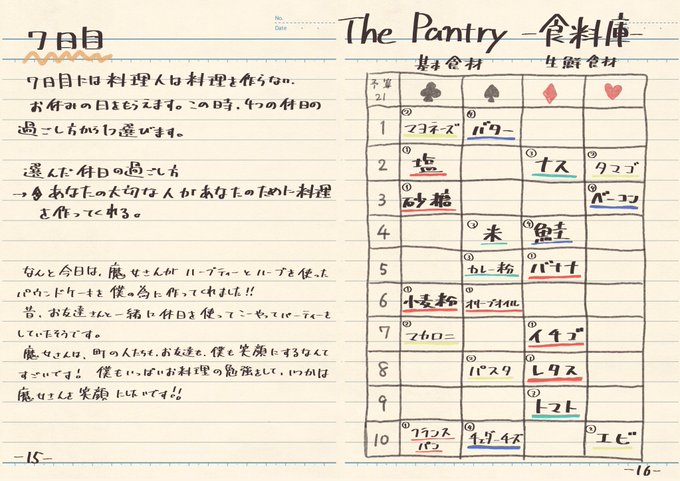 No.
Date
7日目
7日目には料理人は料理を作らない、
お休みの日をもらえます。この時、4つの休日の
過ごし方から1つ選びます。
選んだ休日の過ごし方
→♠あなたの大切な人があなたのために料理
を作ってくれる。
なんと今日は、魔女さんがハーブティーとハーブを使った
パウンドケーキを僕の為に作ってくれました!!
昔、お友達さんと一緒に休日を使ってこーやってパーティーを
していたそうです。
魔女さんは、町の人たちも、お友達も、僕も笑顔にするなんて
すごいです! 僕もいっぱいお料理の勉強をして、いつかは
魔女さんを笑顔にしたいです!!
-15-
The Pantry -食料庫-
基本食材 生鮮食材
予算 21 ♣ ♠ ♦ ♥
1 ② マヨネーズ ④ バター
2 ① 塩 ① ナス ③ タマゴ
3 ① 砂糖 ④ ベーコン
4 ③ 米 ④ 鮭
5 ③ カレー粉 ① バナナ
6 ① 小麦粉 ① オリーブオイル
7 ② マカロニ ① イチゴ
8 ② パスタ ① レタス
9 ② トマト
10 ① フランスパン ④ チェダーチーズ ③ エビ
-16-